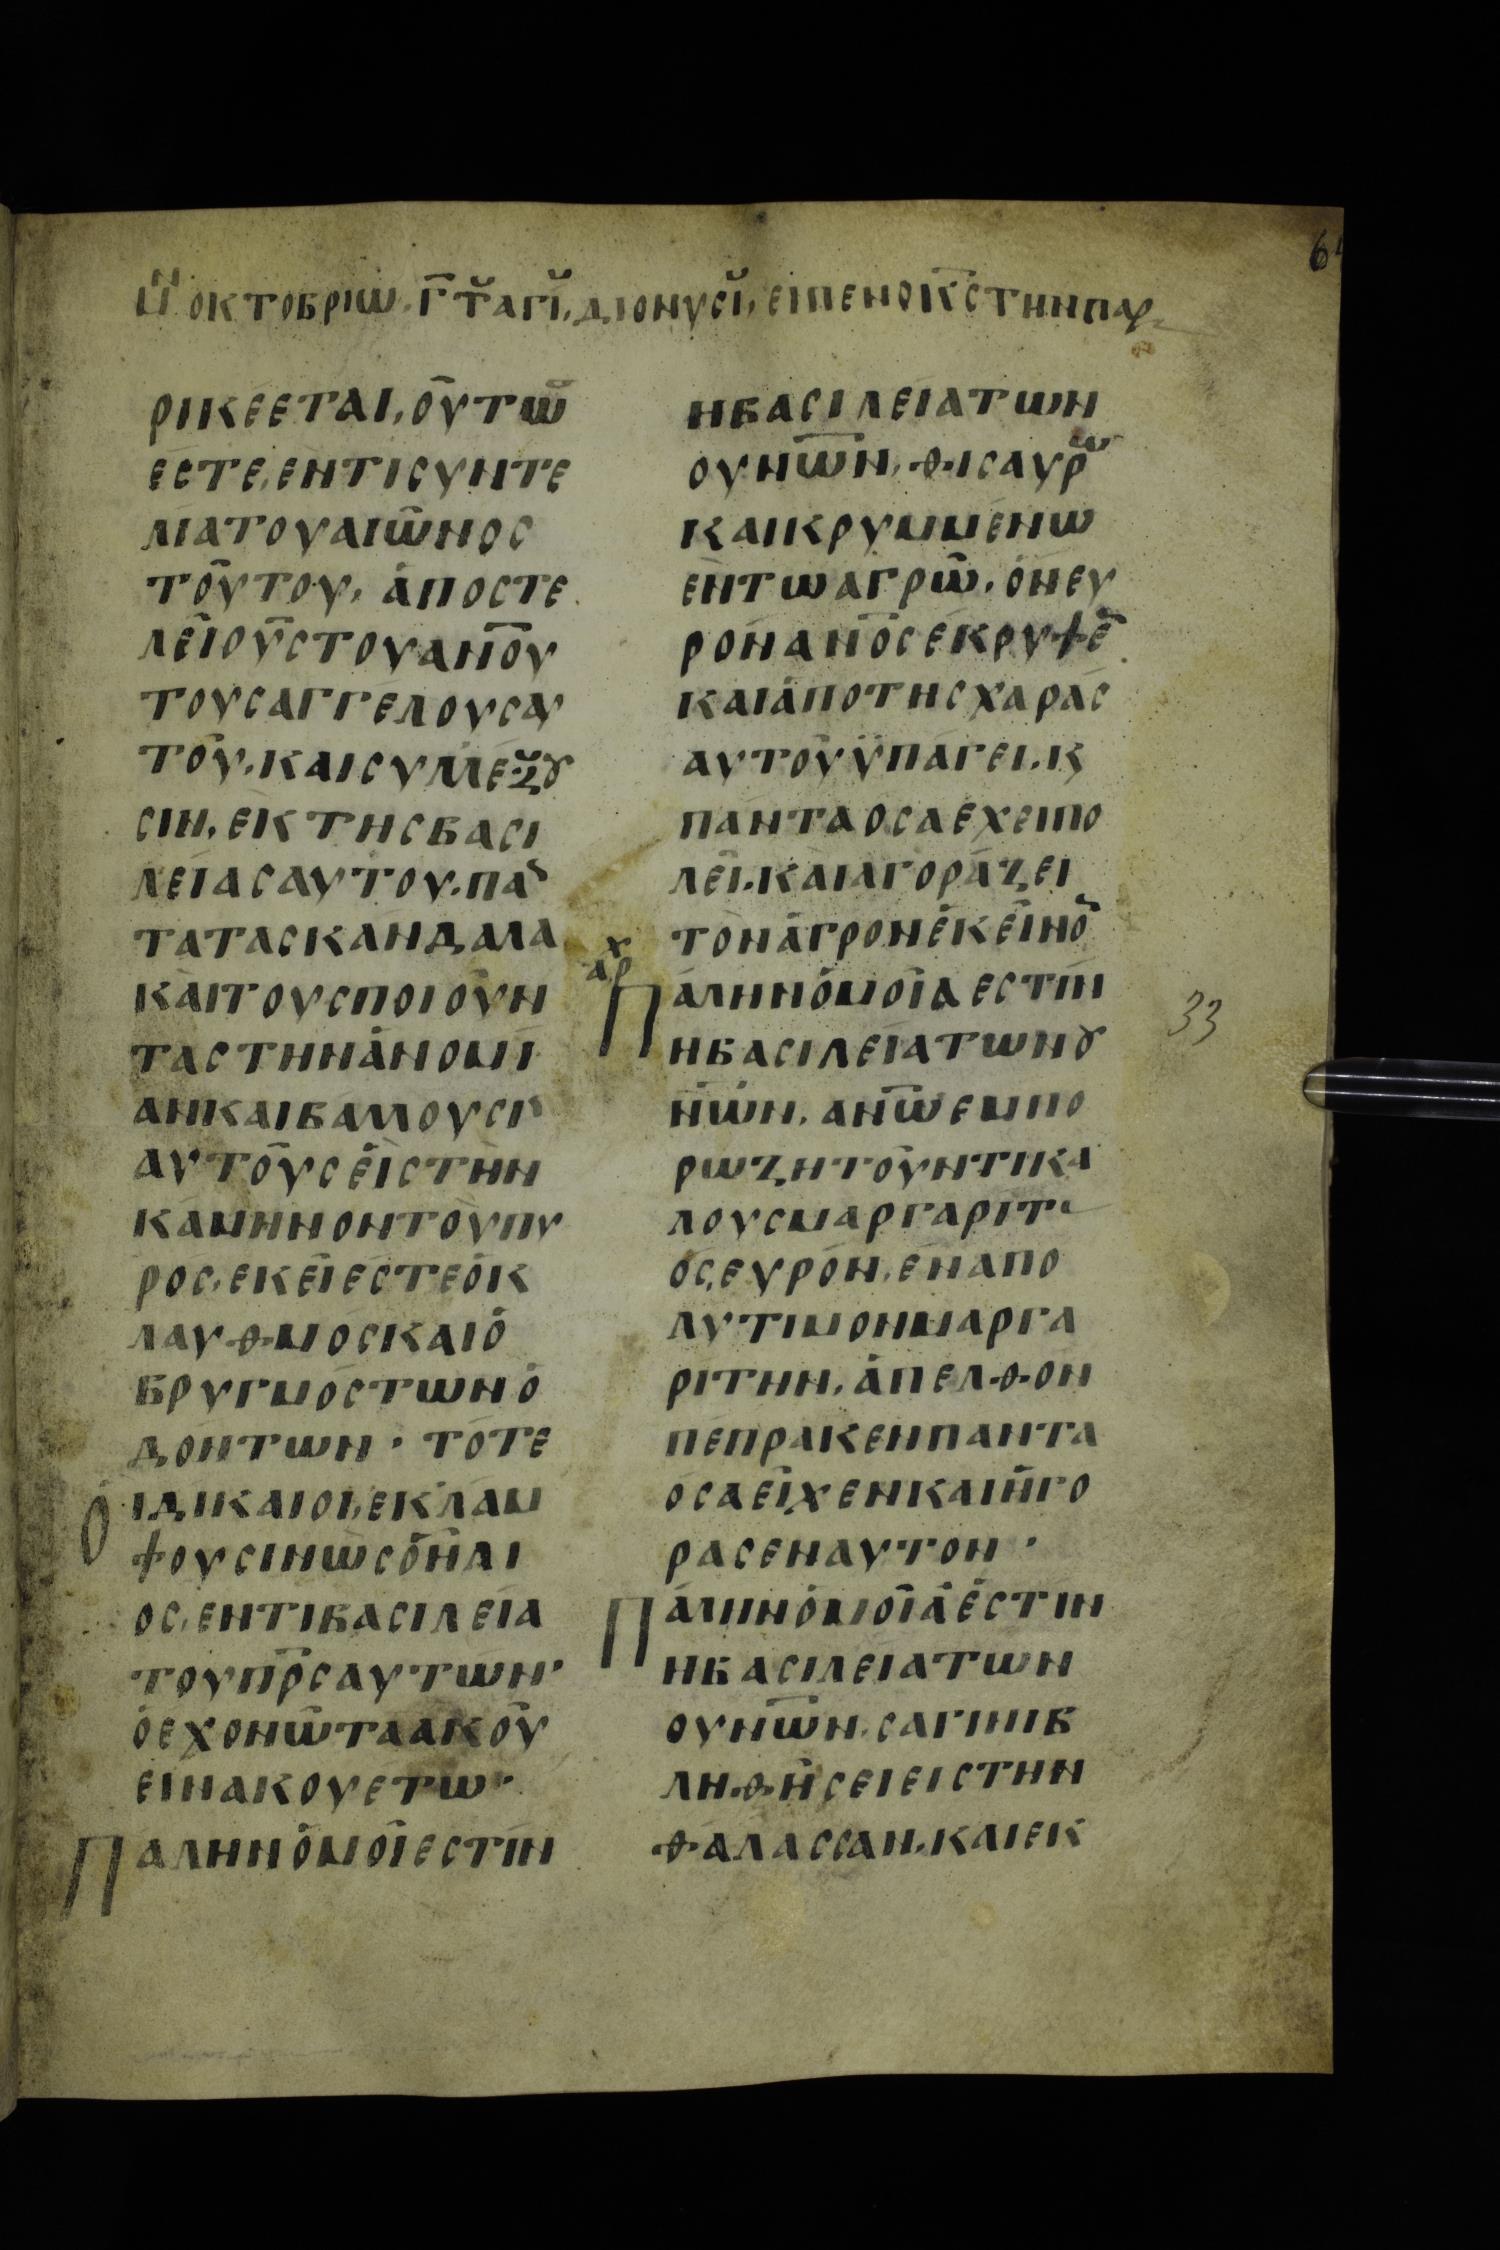 μη οκτοβριω. γ̅ τȣ αγι, διονυσι, ειπεν ο κ̅ς την παρ
ρικέεται, ουτω
εστε, εν τι συντε
λία του αιῶνος
τοῦτου, ἀποστε
λεῖ ο υ̅ς του αν̅ου
τους αγγελους αυ
τοῦ. και συλλέξȣ
σιν, εκ της βασι
λείας αυτου. πα
τα τα σκανδαλα
καὶ τους ποιοῦν
τας την ἀνομί
αν και βαλλουσι
αυτοῦς εἰς τὴν
κάμηνον τοῦ πυ
ρος, εκεῖ εστε ὁ κ
λαυθμος και ὁ
βρυγμός των ὀ
δοντων · τότε
Ὁ
ι δικαιοι, εκλαμ
ψουσιν ὡς ὁ ἥλι
ος, εν τι βασιλεία
του π̅ρ̅ς αυτων·
ὁ εχον ῶτα ακοῦ
ειν ακουετω·
Πάλην ὁμοῖ εστὶν
η βασιλεία των
ουν̅ων, θισαυρω
και κρυμμένω
ὲν τω αγρῶ. ὁν ευ
ρον αν̅ος εκρυψε
και ἀπο της χαράς
αυτοῦ ϋπάγει. κ
πάντα οσα έχει πο
λεῖ. και αγοράζει
τὸν ἀγρον ἐκεῖνο
αρχ
Πάλην ὁμοῖα εστὶν
η βασιλεία των ȣ
ν̅ων, αν̅ω εμπο
ρω ζητοῦντι κα
λους μαργαριτ
ός, ευρόν, ένα πο
λυτιμον μαργα
ρίτην, ἀπελθον
πέπρακεν πάντα
οσα εῖχεν και ἠγο
ρασεν αυτον ·
Πάλιν ὁμοῖα ἐστιν
η βασιλεία των
ουν̅ων. σαγινι β
ληθῆσει εις την
θάλασσαν. και εκ
33